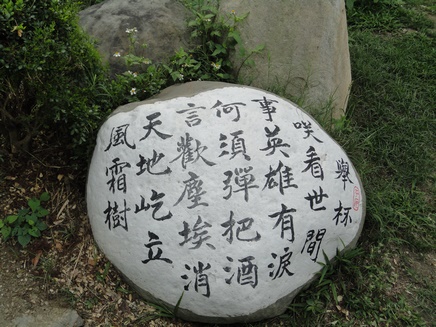 舉杯
笑看世間
事英雄有淚
何須彈把酒
言歡塵埃消
天地屹立
風霜樹